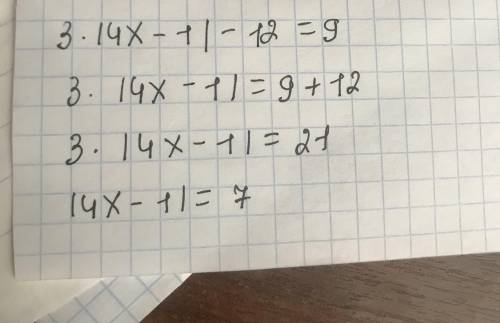 3 · |4x - 1| - 12 = 9
3 · |4x - 1| = 9 + 12
3 · |4x - 1| = 21
|4x - 1| = 7